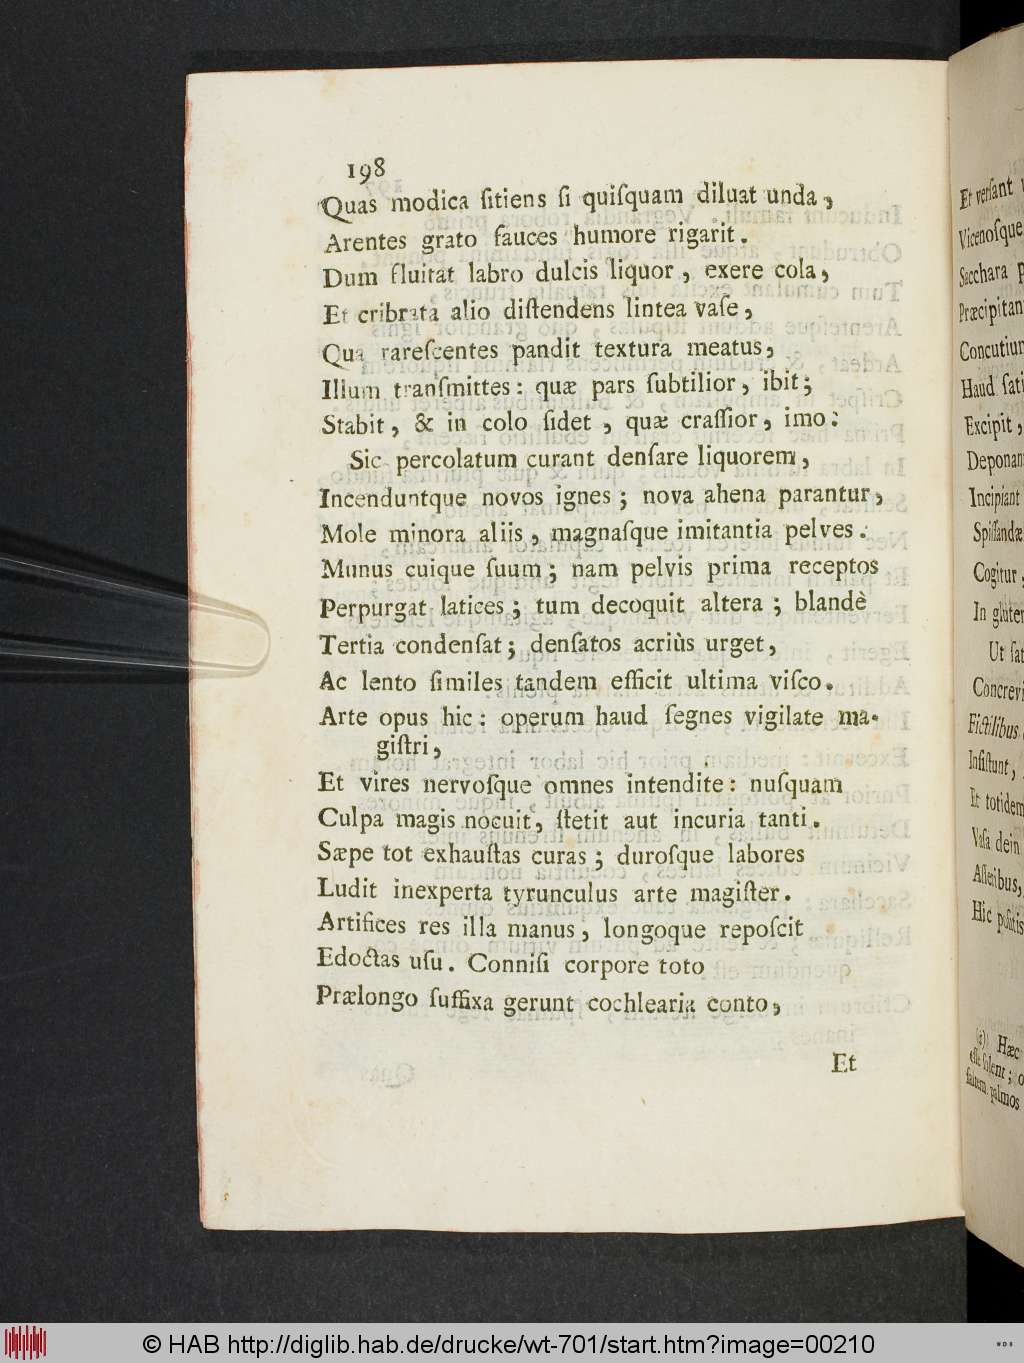 198
Quas modica ſitiens ſi quiſquam diluat unda,
Arentes grato fauces humore rigarit.
Dum fluitat labro dulcis liquor, exere cola,
Et cribrata alio diſtendens lintea vaſe,
Qua rareſcentes pandit textura meatus,
Illum tranſmittes: quæ pars ſubtilior, ibit;
Stabit, & in colo ſidet, quæ craſſior, imo:
Sic percolatum curant denſare liquorem,
Incenduntque novos ignes; nova ahena parantur,
Mole minora aliis, magnaſque imitantia pelves.
Munus cuique ſuum; nam pelvis prima receptos
Perpurgat latices; tum decoquit altera; blandè
Tertia condenſat; denſatos acriùs urget,
Ac lento ſimiles tandem efficit ultima viſco.
Arte opus hic: operum haud ſegnes vigilate ma-
giſtri,
Et vires nervoſque omnes intendite: nuſquam
Culpa magis nocuit, ſtetit aut incuria tanti.
Sæpe tot exhauſtas curas; duroſque labores
Ludit inexperta tyrunculus arte magiſter.
Artifices res illa manus, longoque repoſcit
Edoctas uſu. Conniſi corpore toto
Prælongo ſuffixa gerunt cochlearia conto,
Et
Et verſant
Vicenoſque
Sacchara
Præcipitan
Concutiun
Haud ſati
Excipit,
Deponan
Incipiant
Spiſſandæ
Cogitur,
In gluten
Ut ſat
Concrevi
Fictilibus
Inſiſtunt,
Et totidem
Vaſa dein
Aſſeribus,
Hic poſitis
Hæc
eſſe ſolent; o
palmos
© HAB http://diglib.hab.de/drucke/wt-701/start.htm?image=00210